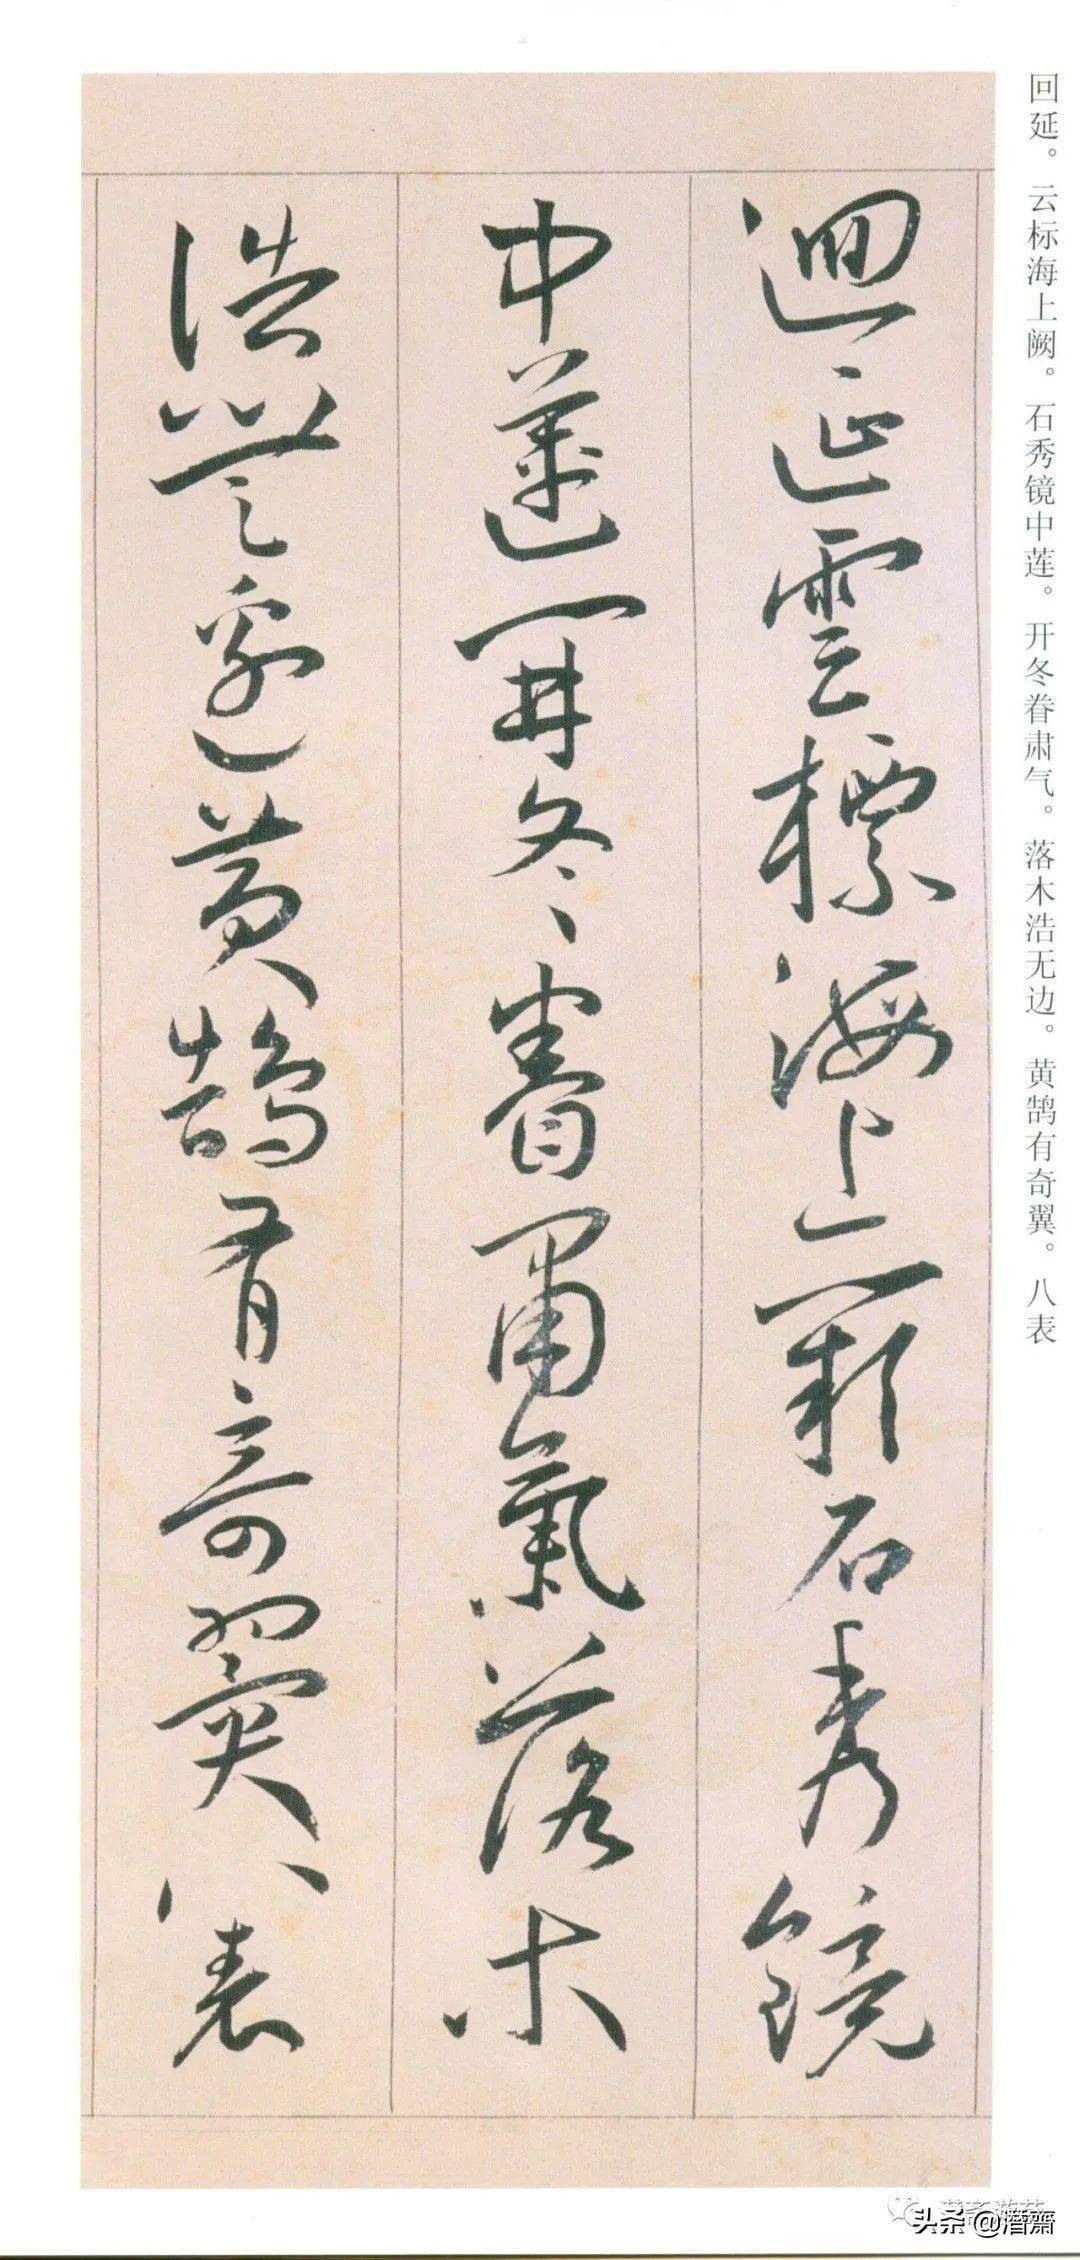 回延。云标海上阙。石秀镜中莲。开冬眷肃气。落木浩无边。黄鹄有奇翼。八表
迴延雲標海上闕石秀鏡
中蓮開冬眷肅氣落木
浩無邊黃鵠有奇翼八表
头条@潛蕭